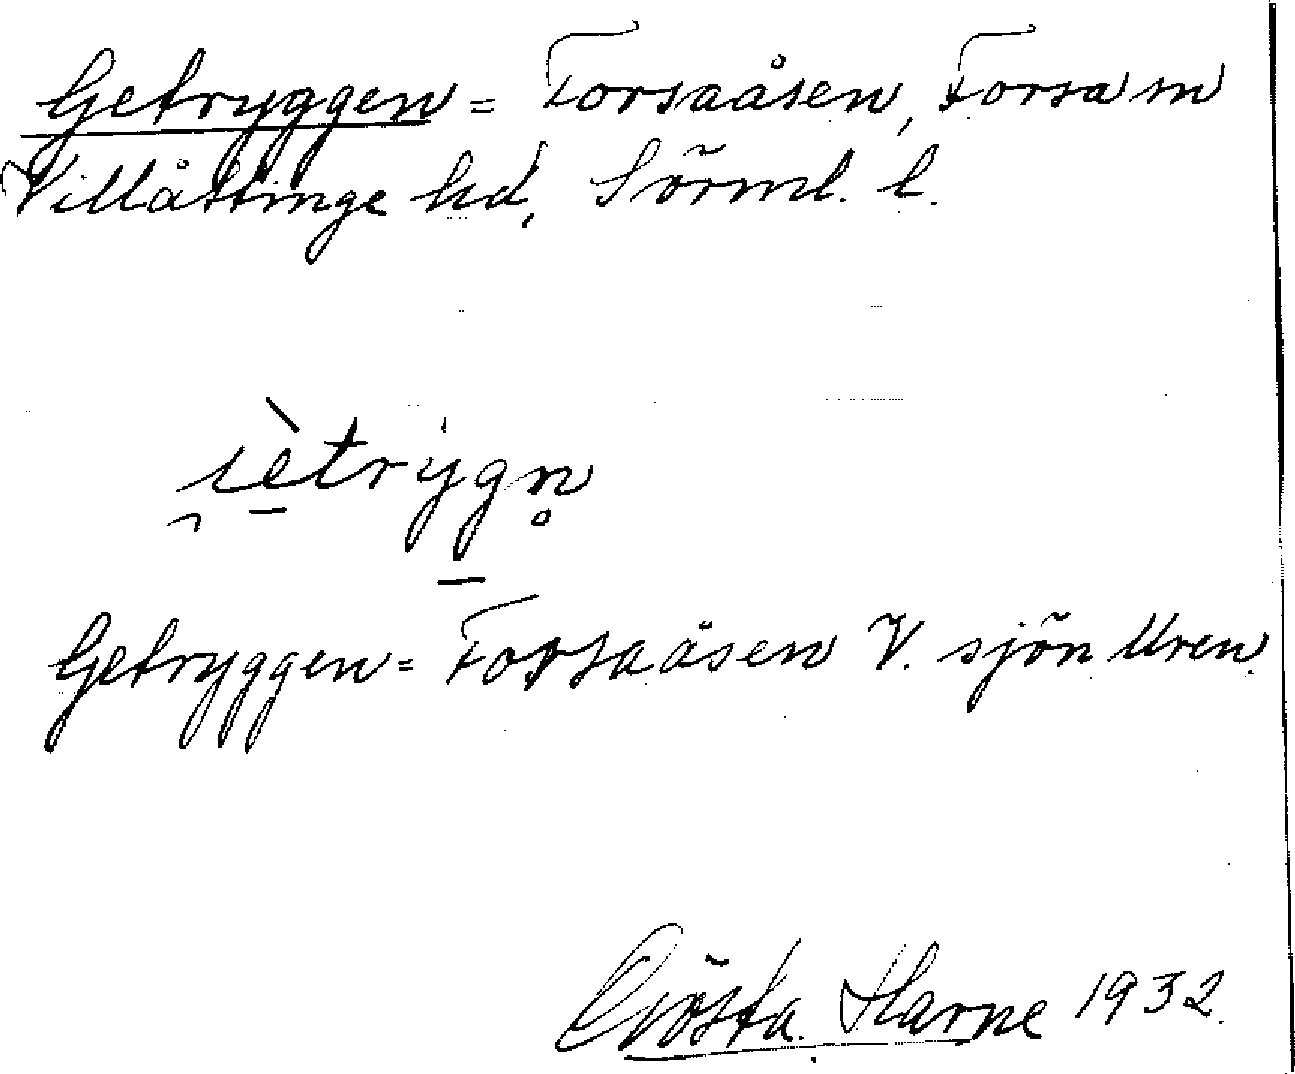 Getryggen = Forsaåsen, Forsa sn
Villåttinge hd, Sörml. l.
i̯ètrỳgn̥
Getryggen = Forsaåsen V. sjön Uren
Gösta Harne 1932.